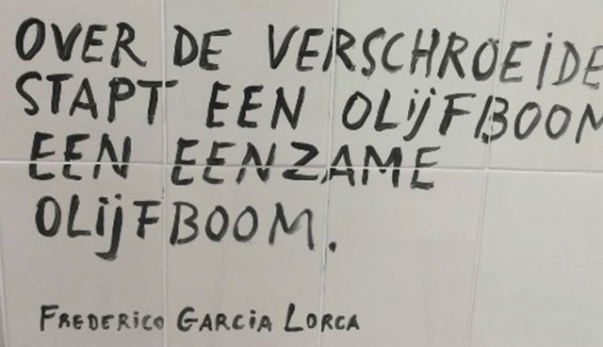 OVER DE VERSCHROEIDE
STAPT EEN OLIJFBOOM
EEN EENZAME
OLIJFBOOM.
FREDERICO GARCIA LORCA